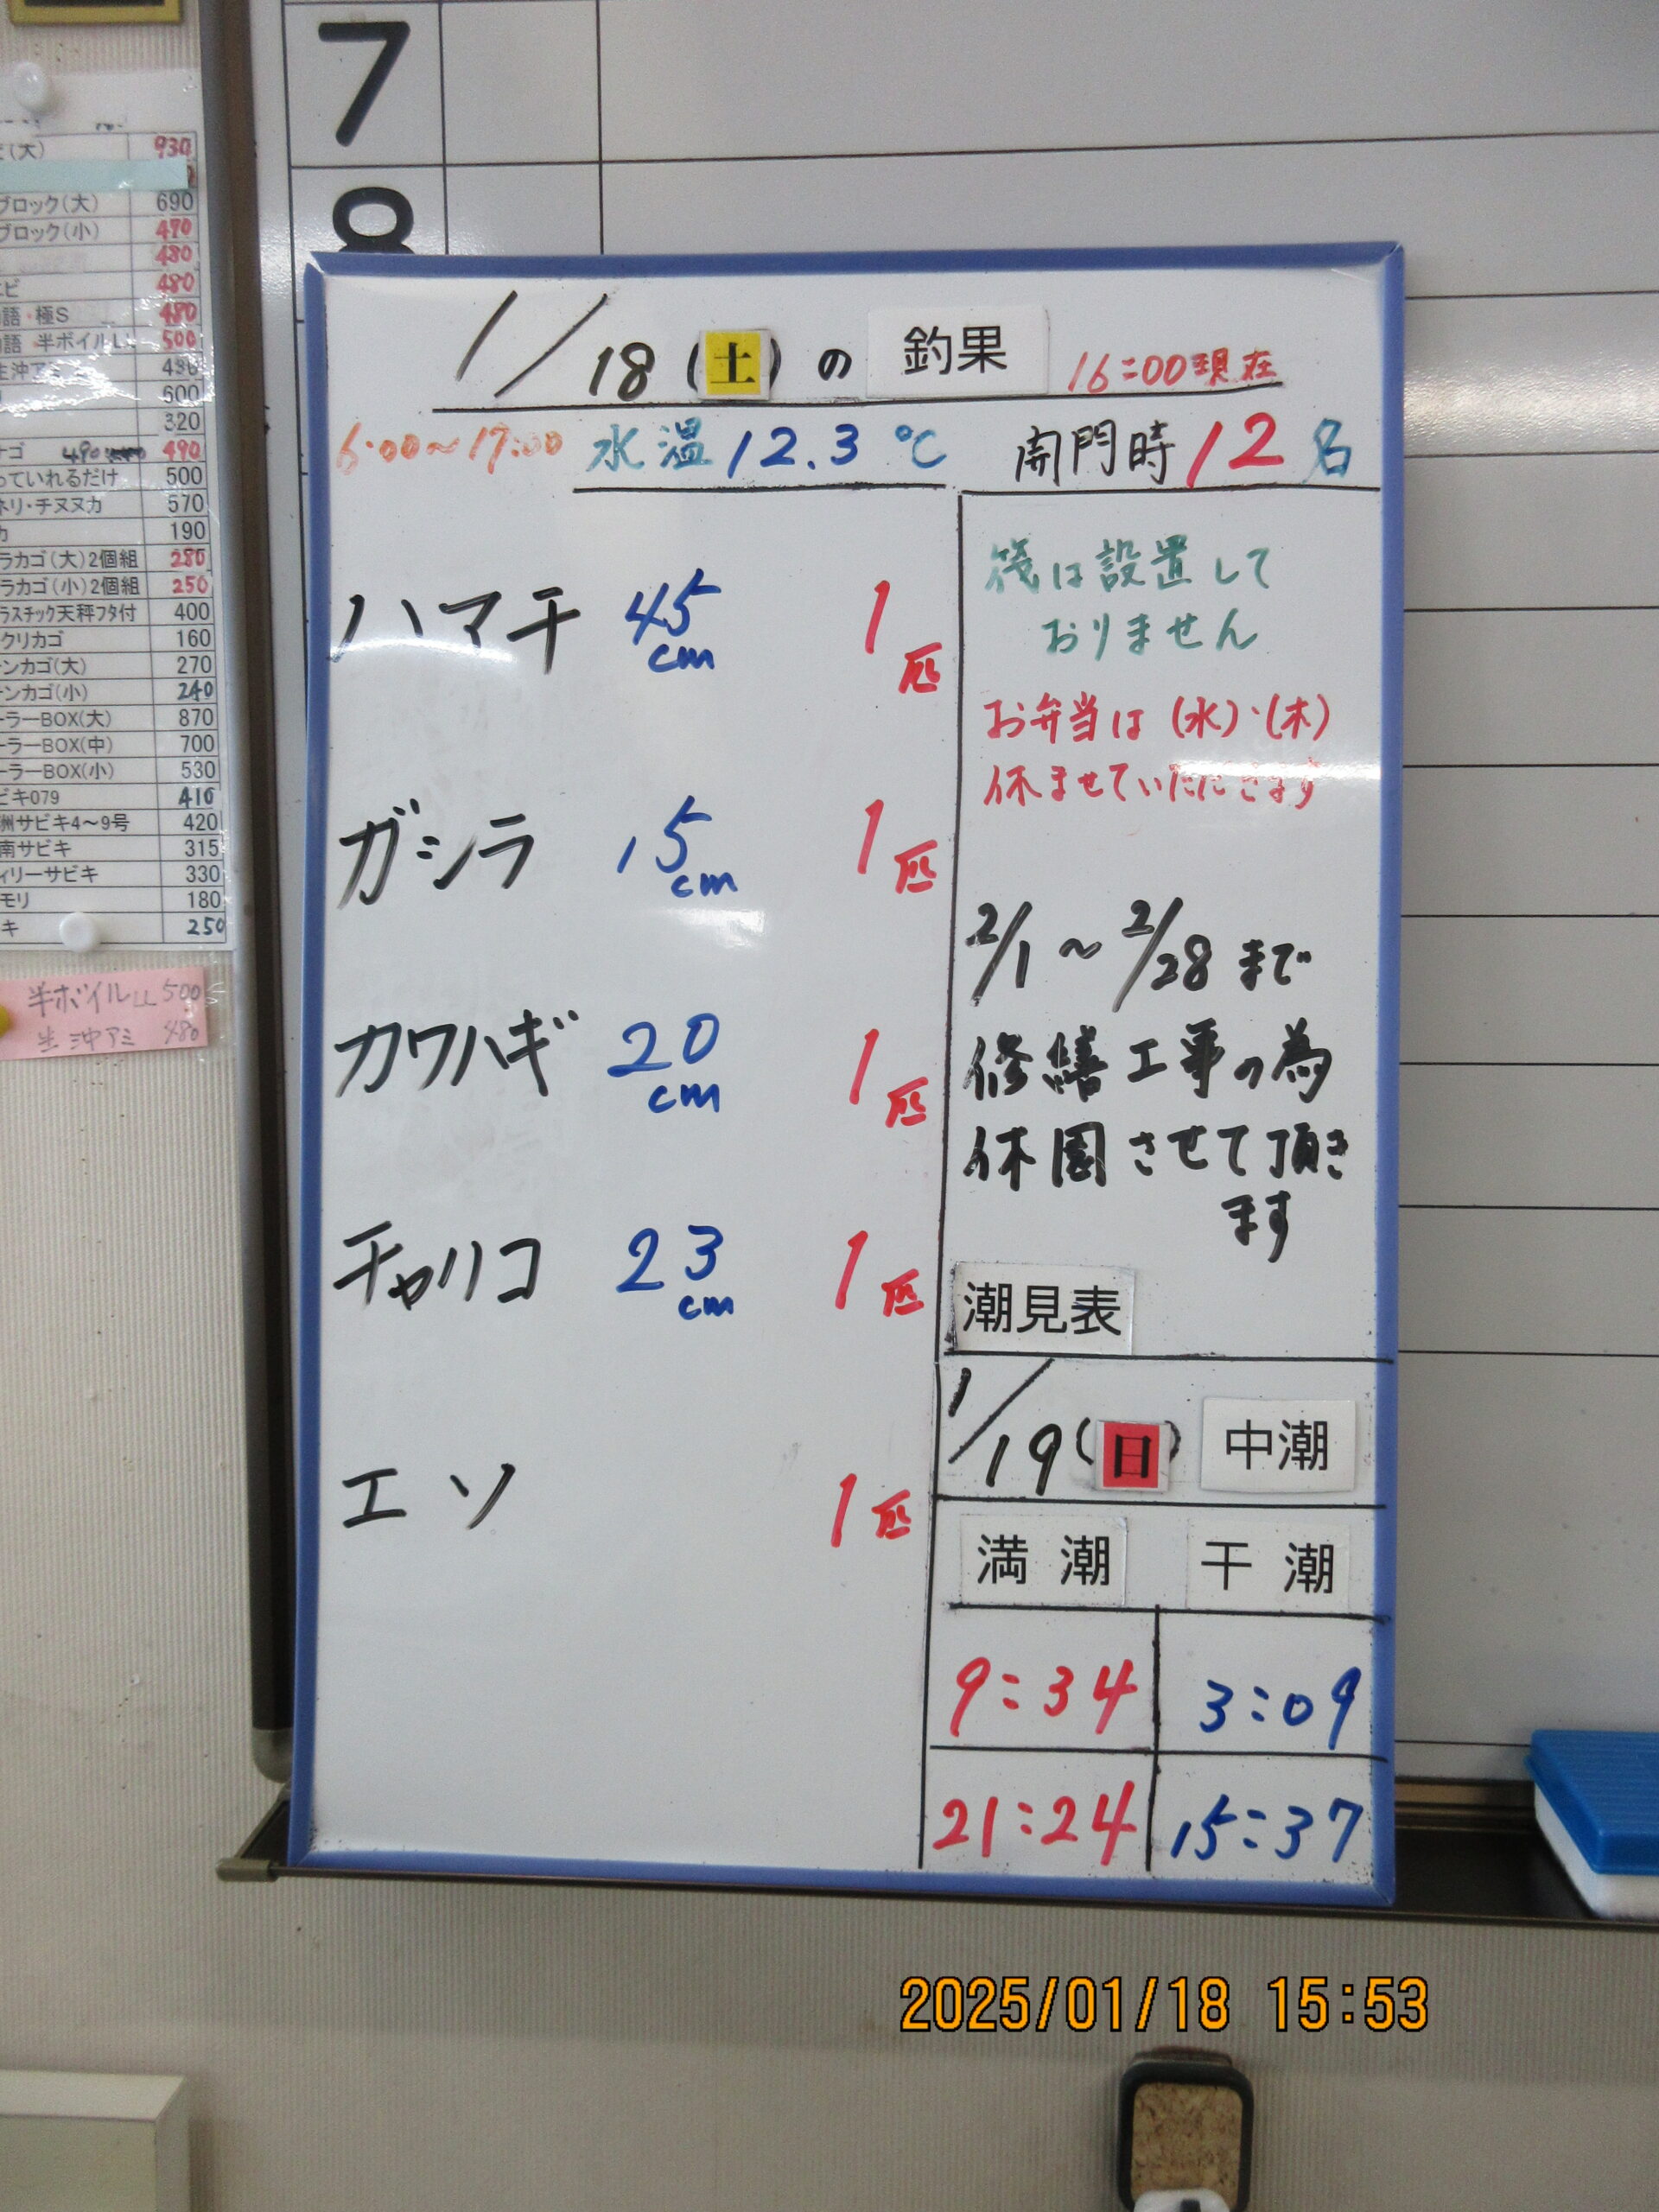 7
8
(大) 930
ブロック(大) 690
ブロック(小) 470
480
ビ 480
語・極S 480
語 半ボイルL 500
生沖ア 490
600
320
490 490
っていれるだけ 500
ネリ・チヌヌカ 570
カ 190
ラカゴ(大)2個組 280
ラカゴ(小)2個組 250
ラスチック天秤フタ付 400
クリカゴ 160
ンカゴ(大) 270
ンカゴ(小) 240
ーラーBOX(大) 870
ーラーBOX(中) 700
ーラーBOX(小) 530
ビキ079 410
洲サビキ4〜9号 420
南サビキ 315
ィリーサビキ 330
モリ 180
キ 250
半ボイルLL 500
生沖アミ 480
1/18(土)の 釣果 16:00現在
6:00〜17:00 水温12.3℃ 開門時12名
ハマチ 45cm 1匹
ガシラ 15cm 1匹
カワハギ 20cm 1匹
チャリコ 23cm 1匹
エソ 1匹
筏は設置して
おりません
お弁当は(水)・(木)
休ませていただきます
2/1〜2/28まで
修繕工事の為
休園させて頂き
ます
潮見表
1/19(日) 中潮
満潮 干潮
9:34 3:09
21:24 15:37
2025/01/18 15:53